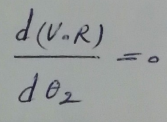 d(V.R)
/
dθ2 = 0